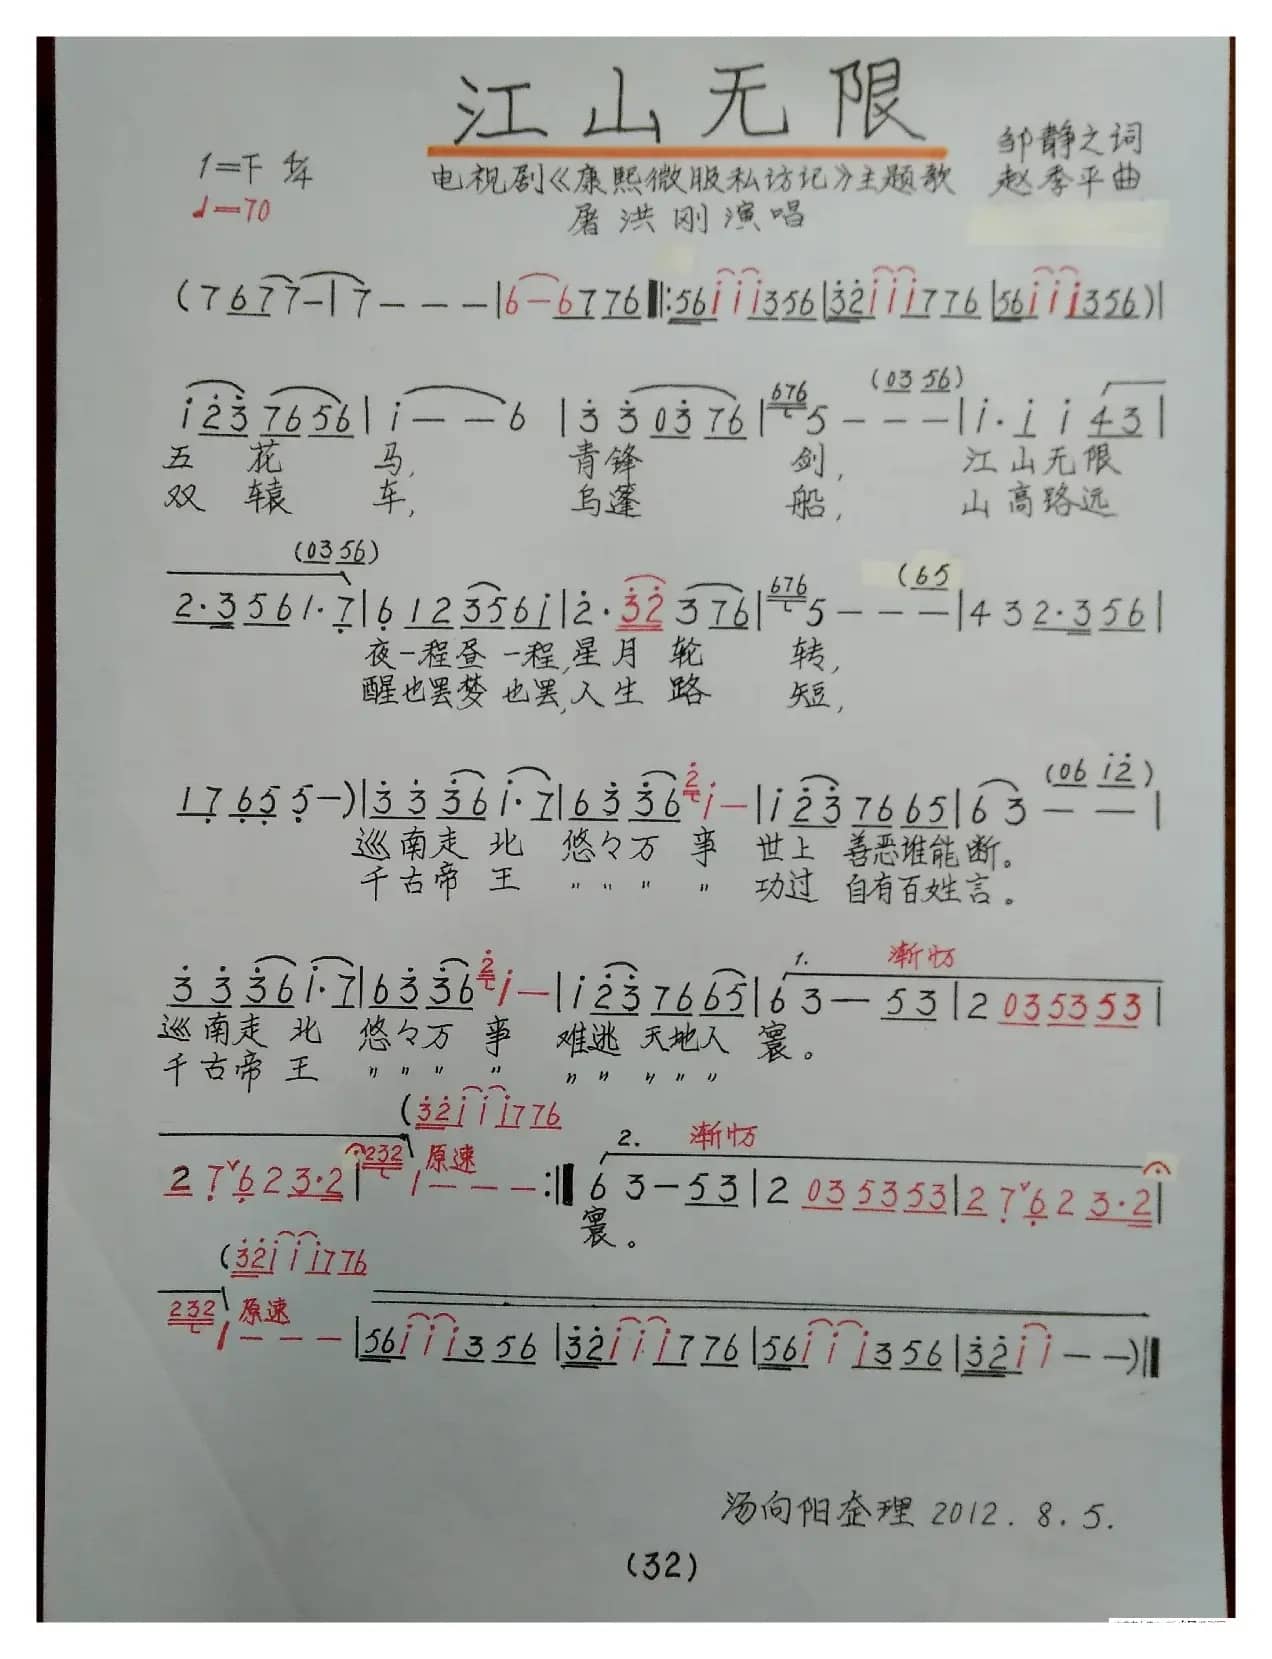 江山无限
邹静之词
1=F 4/4
电视剧《康熙微服私访记》主题歌
赵季平曲
♩=70
屠洪刚演唱
(7 6 7 7 - | 7 - - - | 6 - 6 7 7 6 ‖: 5 6 i i i 3 5 6 | 3̇ 2̇ i i i 7 7 6 | 5 6 i i i 3 5 6 ) |
(03 56)
i 2̇ 3̇ 7 6 5 6 | i - - 6 | 3̇ 3̇ 0 3̇ 7 6 | 676 5 - - - | i · i i 4 3 |
五 花 马, 青锋 剑, 江山无限
双 辕 车, 乌蓬 船, 山高路远
(03 56)
(65
2 · 3 5 6 1 · 7̣ | 6̣ 1 2 3 5 6 i | 2̇ · 3̇ 2̇ 3 7 6 | 676 5 - - - | 4 3 2 · 3 5 6 |
夜一程昼一程,星月轮 转,
醒也罢梦也罢,人生路 短,
(06 i 2̇)
1 7̣ 6̣ 5̣ 5̣ - ) | 3̇ 3̇ 3̇ 6 i · 7 | 6 3̇ 3̇ 6 2̇ i - | i 2̇ 3̇ 7 6 6 5 | 6 3 - - |
巡南走北 悠々万事 世上善恶谁能断。
千古帝王 〃〃〃〃 功过自有百姓言。
1. 渐慢
3̇ 3̇ 3̇ 6 i · 7 | 6 3̇ 3̇ 6 2̇ i - | i 2̇ 3̇ 7 6 6 5 | 6 3 - 5 3 | 2 0 3 5 3 5 3 |
巡南走北 悠々万事 难逃天地人寰。
千古帝王 〃〃〃〃 〃〃〃〃〃
(3̇ 2̇ i i i 7 7 6
原速
2. 渐慢
2 7̣ 6̣ 2 3 · 2 | 232 1 - - - :‖ 6 3 - 5 3 | 2 0 3 5 3 5 3 | 2 7̣ 6̣ 2 3 · 2 |
寰。
(3̇ 2̇ i i i 7 7 6
原速
232 1 - - - | 5 6 i i i 3 5 6 | 3̇ 2̇ i i i 7 7 6 | 5 6 i i i 3 5 6 | 3̇ 2̇ i i - - ) ‖
汤向阳整理 2012. 8. 5.
(32)